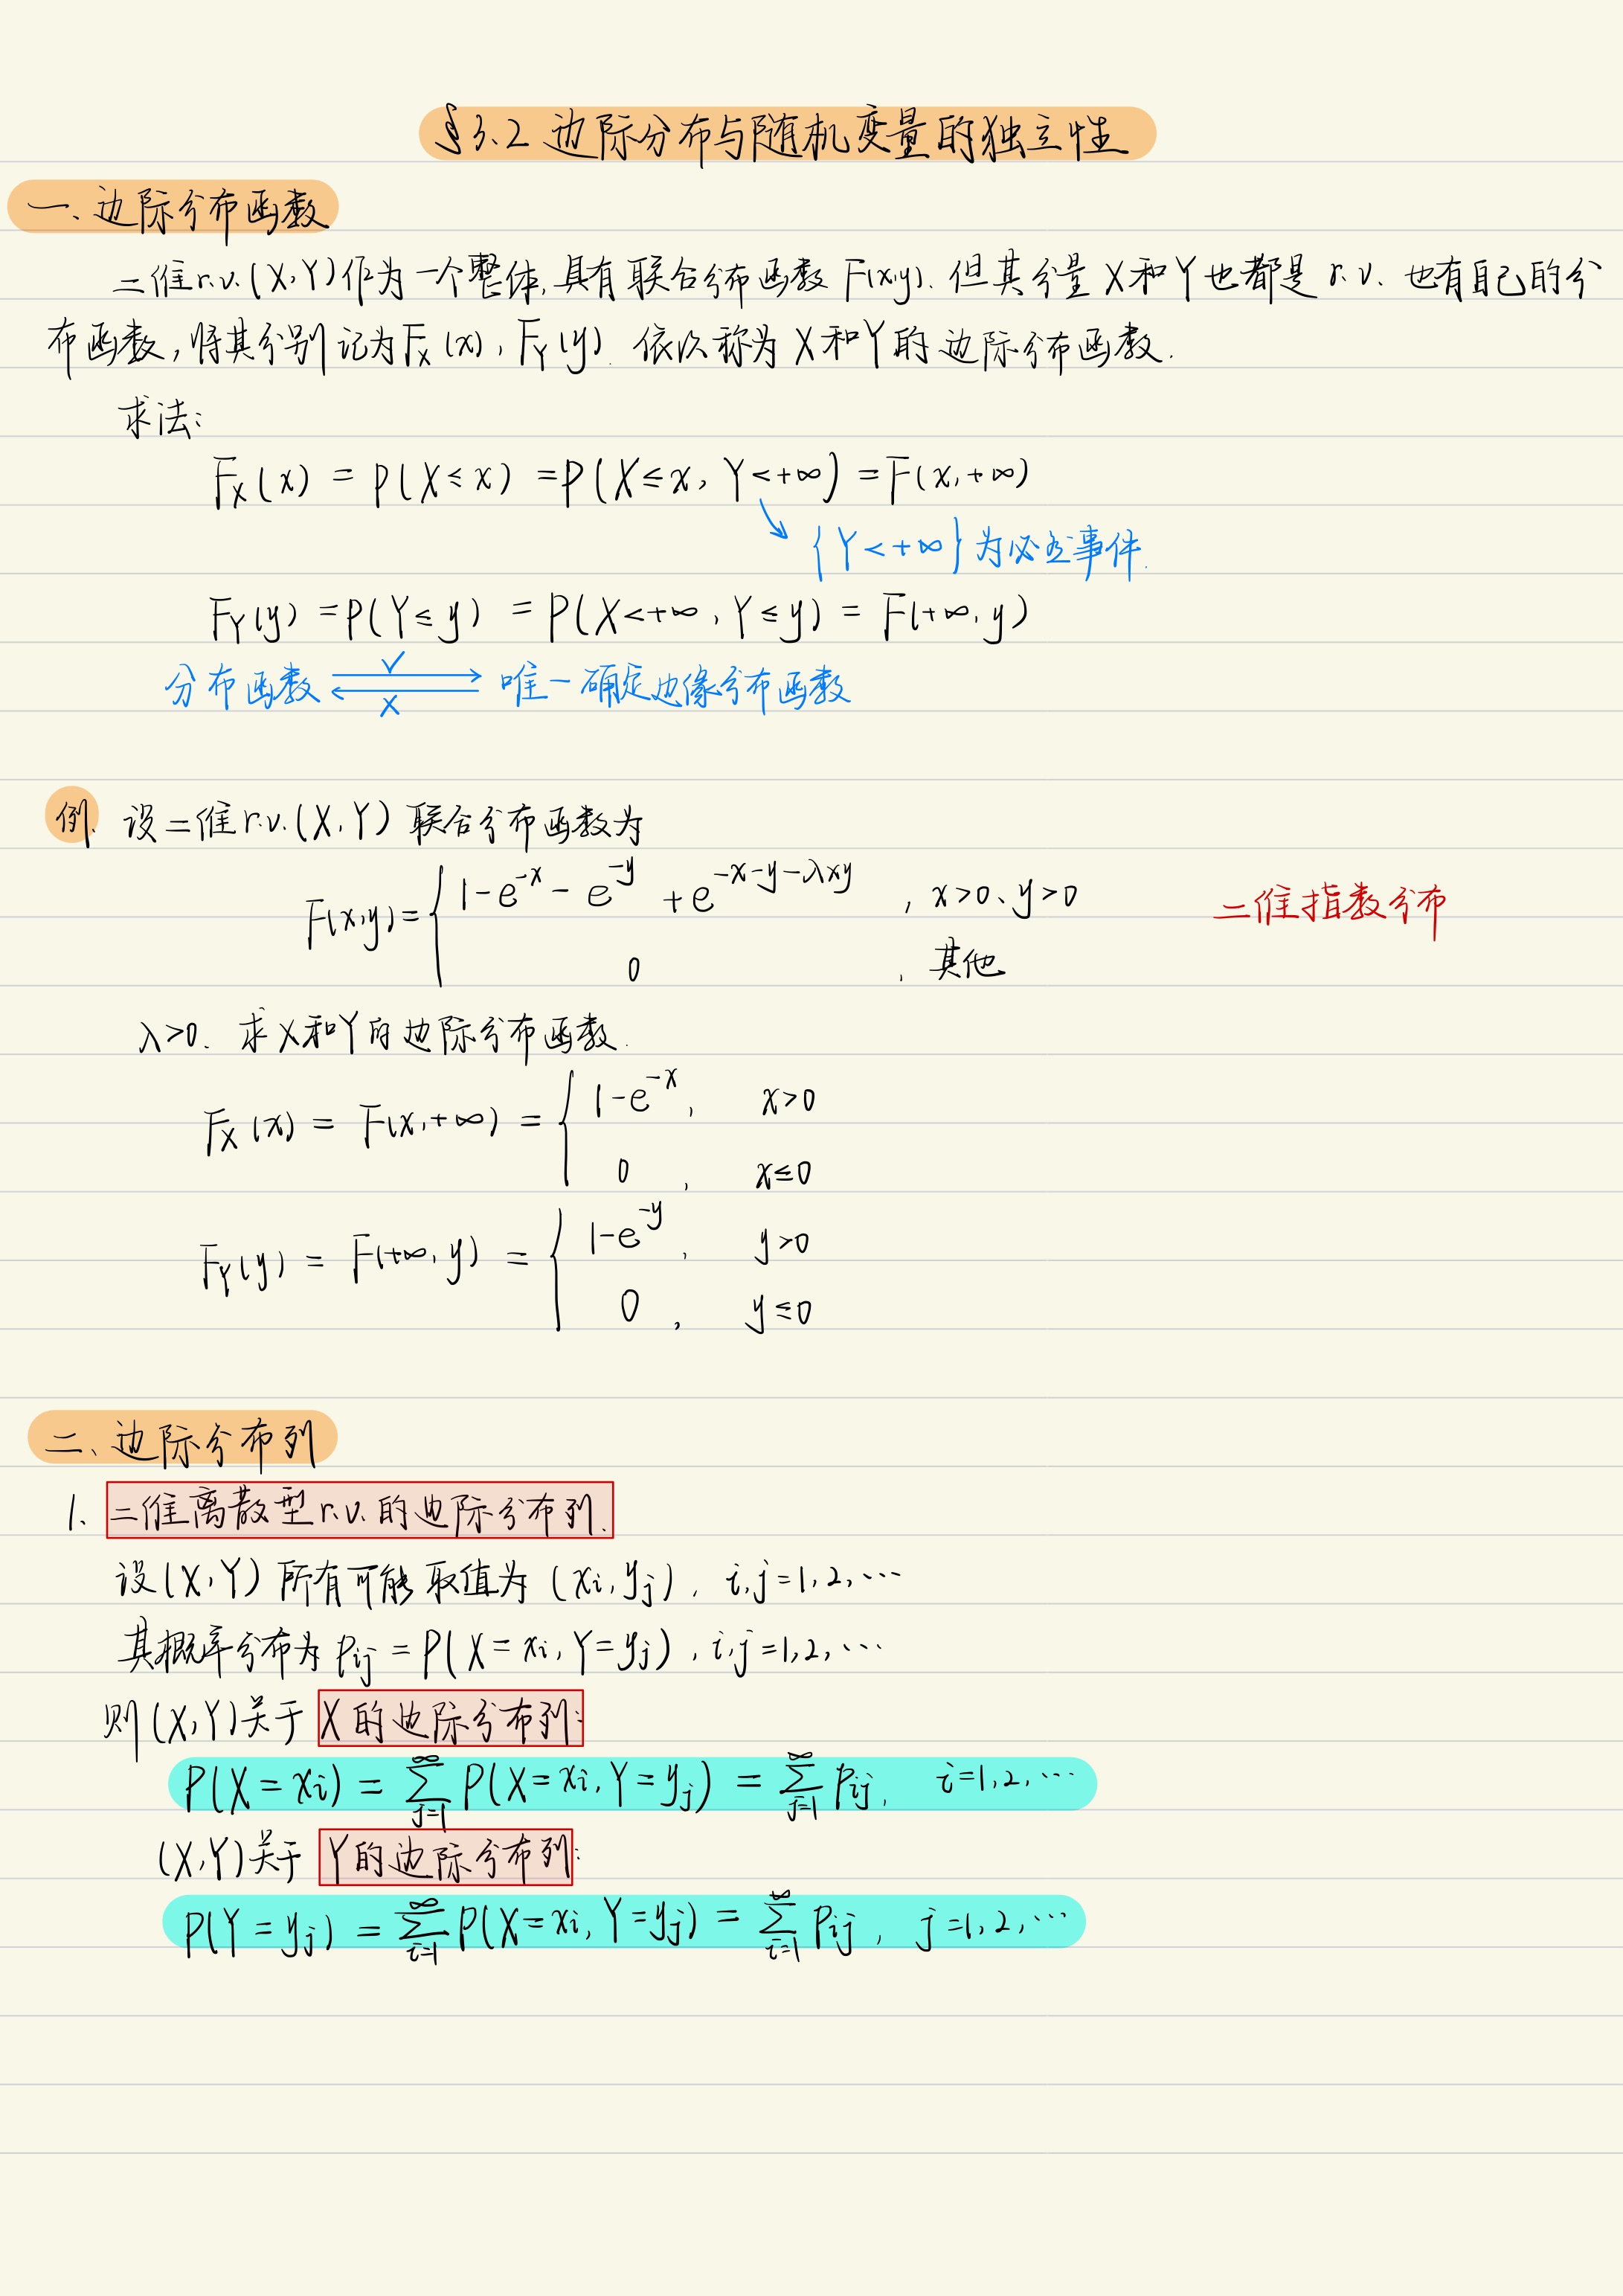 §3.2 边际分布与随机变量的独立性
一、边际分布函数
二维r.v.(X,Y)作为一个整体,具有联合分布函数 F(x,y). 但其分量 X和Y也都是 r.v. 也有自己的分
布函数,将其分别记为F_X(x), F_Y(y). 依次称为 X和Y的边际分布函数.
求法:
F_X(x) = P(X≤x) = P(X≤x, Y<+∞) = F(x,+∞)
{Y<+∞}为必然事件.
F_Y(y) = P(Y≤y) = P(X<+∞, Y≤y) = F(+∞,y)
分布函数 ⇄ 唯一确定边缘分布函数
✓
×
例. 设二维r.v.(X,Y) 联合分布函数为
F(x,y) = { 1-e^{-x} - e^{-y} + e^{-x-y-λxy} , x>0、y>0
0 , 其他
二维指数分布
λ>0. 求X和Y的边际分布函数.
F_X(x) = F(x,+∞) = { 1-e^{-x}, x>0
0 , x≤0
F_Y(y) = F(+∞,y) = { 1-e^{-y}, y>0
0 , y≤0
二、边际分布列
1. 二维离散型r.v.的边际分布列.
设(X,Y) 所有可能取值为 (x_i, y_j), i,j=1,2,…
其概率分布为 p_{ij} = P(X=x_i, Y=y_j), i,j=1,2,…
则(X,Y)关于 X的边际分布列:
P(X=x_i) = ∑_{j=1}^{∞} P(X=x_i, Y=y_j) = ∑_{j=1}^{∞} p_{ij}, i=1,2,…
(X,Y)关于 Y的边际分布列:
P(Y=y_j) = ∑_{i=1}^{∞} P(X=x_i, Y=y_j) = ∑_{i=1}^{∞} p_{ij}, j=1,2,…